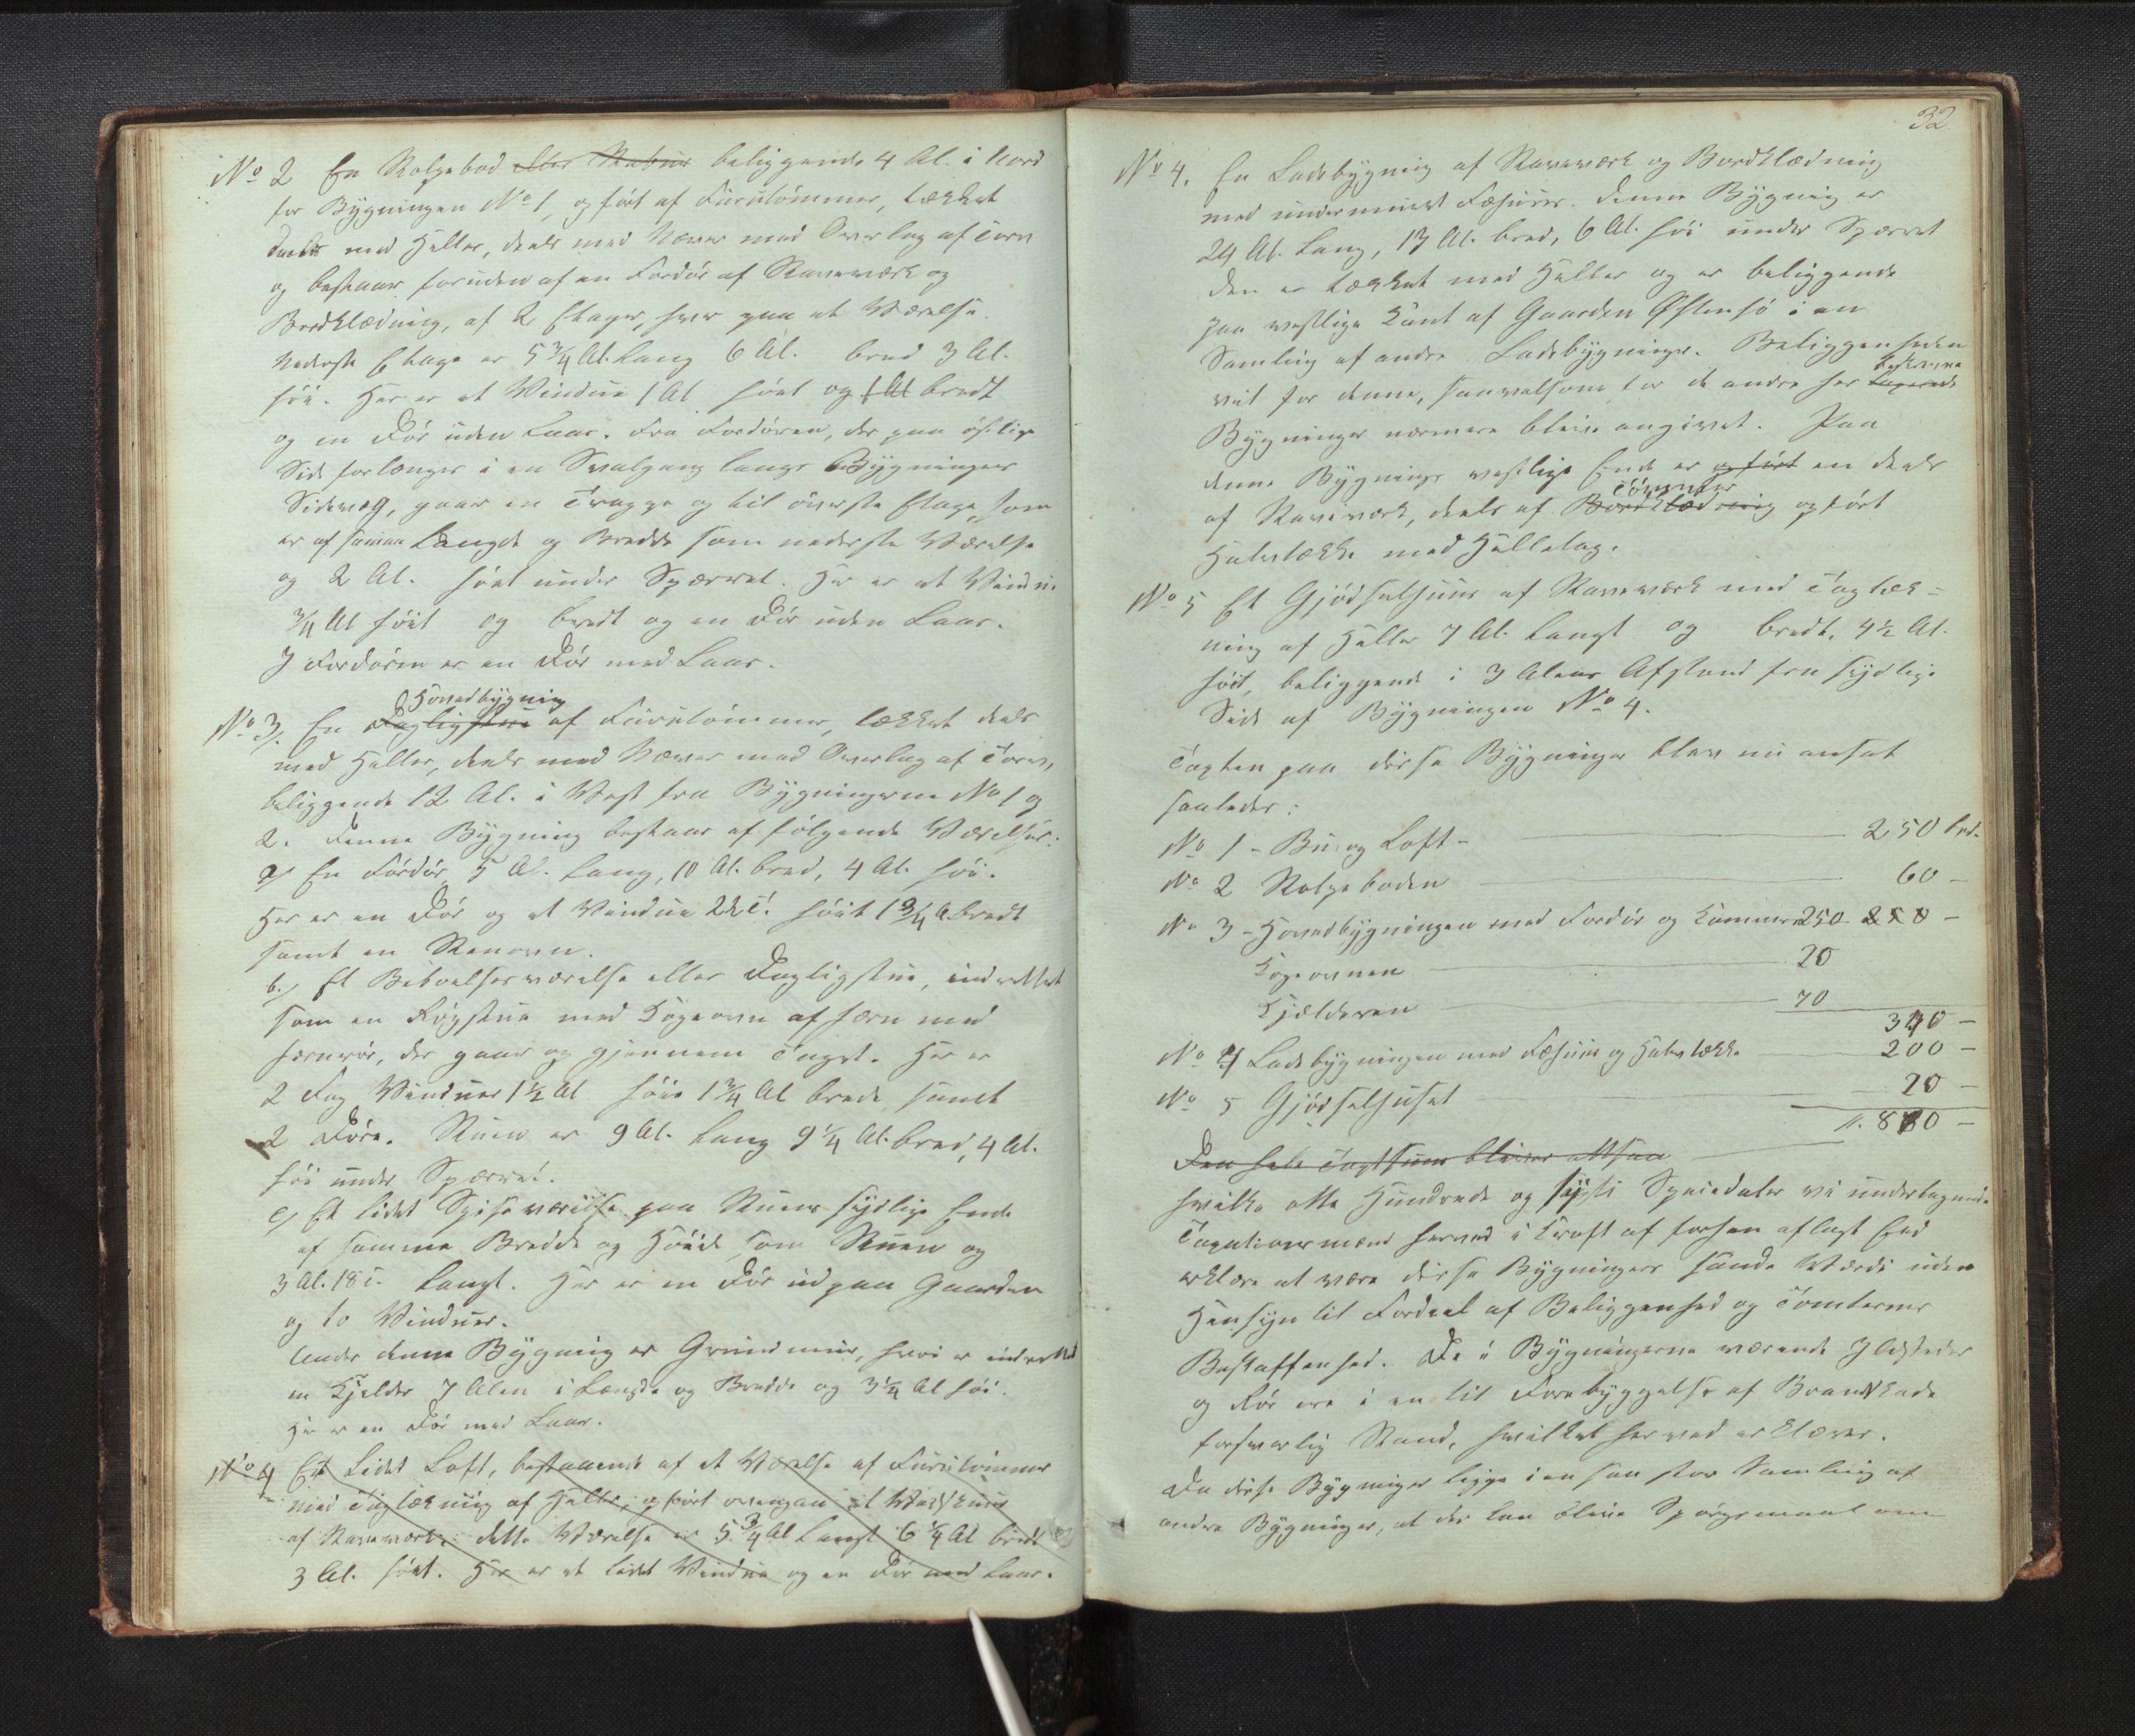 No 2 En Stolpebod eller Stabur beliggende 4 Al. i Nord
for Bygningen No 1, opført af Furutømmer, tækket
deels med Heller, deels med Næver med Overlag af Torv
og bestaar foruden af en Fordør af Staveværk og
Bordklædning, af 2 Etager, hver paa et Værelse.
Nederste Etage er 5 3/4 Al. lang 6 Al. bred 3 Al.
høi. Her er et Vindue 1 Al høit og 1 Al bredt
og en Dør uden Laas. Fra Fordøren, der paa østlige
Side forlænges i en Svalgang langs Bygningens
Sidevæg, gaar en Trappe op til øverste Etage, som
er af samme Længde og Bredde som nederste Værelse
og 2 Al. høit under Sperret. Her er et Vindue
3/4 Al høit og bredt og en Dør uden Laas.
I Fordøren er en Dør med Laas.
Hovedbygning
No 3/. En Dagligstue af Furutømmer, tækket deels
med Heller, deels med Næver med Overlag af Torv,
beliggende 12 Al. i Vest fra Bygningerne No 1 og
2. Denne Bygning bestaar af følgende Værelser:
a/ En Fordør, 5 Al. lang, 10 Al. bred, 4 Al. høi.
Her er en Dør og et Vindue 22 T. høit 1 3/4 A. bredt
samt en Steenovn.
b./ Et Beboelsesværelse eller Dagligstue, indrettet
som en Røgstue med Kogeovn af Jern med
Jernrør, der gaar op gjennem Taget. Her er
2 Fag Vinduer 1 1/2 Al høie 1 3/4 Al brede samt
2 Døre. Stuen er 9 Al. lang 9 1/4 Al. bred, 4 Al.
høi under Sperret.
c/ Et lidet Spiseværelse paa Stuens sydlige Ende
af samme Bredde og Høide som Stuen og
3 Al. 18 T. langt. Her er en Dør ud paa Gaarden
og to Vinduer.
Under denne Bygning er Grundmuur, hvori er indrettet
en Kjelder 7 Alen i Længde og Bredde og 3 1/4 Al høi.
Her er en Dør med Laas.
No 4 Et lidet Loft, bestaaende af et Værelse af Furutømmer
med Tagtækning af Heller, opført ovenpaa et
af Staveværk. Dette Værelse er 5 3/4 Al langt 6 1/4 Al bredt
3 Al. høit. Her er et lidet Vindue og en Dør med Laas.
32
No 4. En Ladebygning af Staveværk og Bordklædning
med undermuret Fæhuus. Denne Bygning er
24 Al. lang, 13 Al. bred, 6 Al. høi under Sperret
Den er tækket med Heller og er beliggende
paa vestlige Kant af Gaarden Østensø i en
Samling af andre Ladebygninger. Beliggenheden
beskrevne
vil for denne, saavelsom for de andre her
Bygninger nærmere blive angivet. Paa
denne Bygnings vestlige Ende er opført en deels
Tømmer
af Staveværk, deels af Bordklædning opført
Halvtække med Helletag.
No 5 Et Gjødselhuus af Staveværk med Tagtæk=
ning af Heller 7 Al. langt og bredt, 4 1/2 Al.
høit, beliggende i 3 Alens Afstand fra sydlige
Side af Bygningen No 4.
Taxten paa disse Bygninger blev nu ansat
saaledes:
No 1 - Bu og Loft - 250 Spd.
No 2 Stolpeboden 60 -
No 3 - Hovedbygningen med Fordør og Kammer 250 250 -
Kogeovnen 20
Kjælderen 70
340 -
No 4 Ladebygningen med Fæhuus og Halvtække 200 -
No 5 Gjødselhuset 20 -
870 -
Den hele Taxtsum bliver altsaa
hvilke otte Hundrede og sytti Speciedaler vi undertegnede
Taxationsmænd herved i Kraft af forhen aflagt Eed
erklære at være disse Bygningers sande Værdi uden
Hensyn til Fordeel af Beliggenhed og Tomternes
Beskaffenhed. De i Bygningerne værende Ildsteder
og Rør ere i en til Forebyggelse af Brandskade
forsvarlig Stand, hvilket herved erklæres.
Da disse Bygninger ligge i en saa stor Samling af
andre Bygninger, at der kan blive Spørgsmaal om